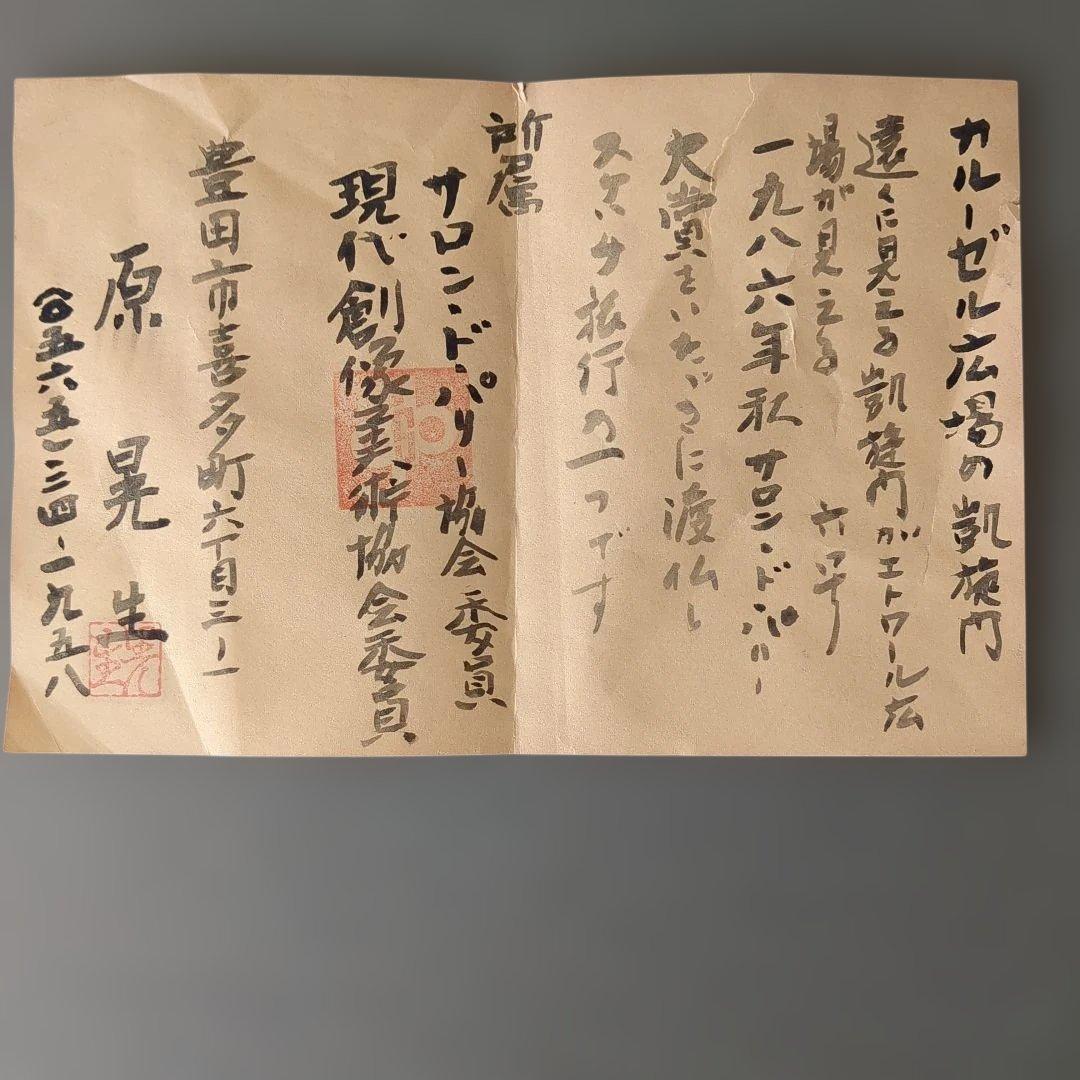 カルーゼル広場の凱旋門
遠くに見える凱旋門がエトワール広
場が見える 六号
一九八六年私サロン・ドパリー
大賞をいたゞきに渡仏し
スケッチ旅行の一つです
所属
サロン・ド・パリー協会委員
現代創像美術協会委員
豊田市喜多町六丁目三ー一
原晃生
(〇五六五)ー三四ー一九五八